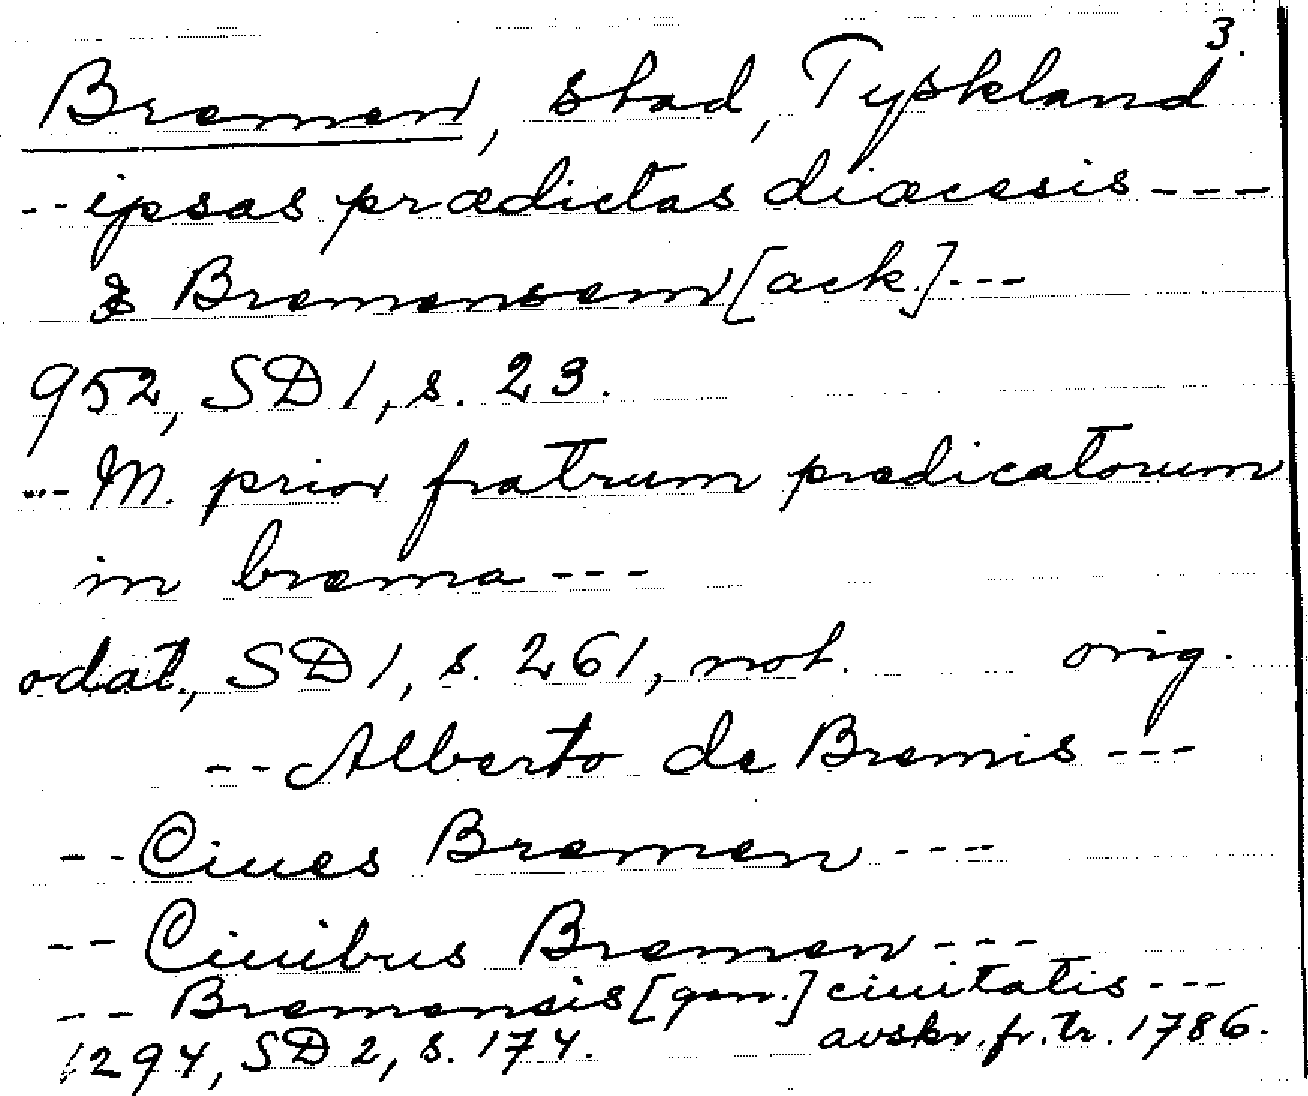 3.
Bremen, stad, Tyskland
-- ipsas prædictas diæcesis ---
& Bremensem [ack.] ---
952, SD 1, s. 23.
--- M. prior fratrum predicatorum
in brema ---
odat., SD 1, s. 261, not. orig.
-- Alberto de Bremis ---
-- Ciues Bremen ---
-- Ciuibus Bremen ---
-- Bremensis [gen.] ciuitatis ---
1294, SD 2, s. 174. avskr. fr. tr. 1786.